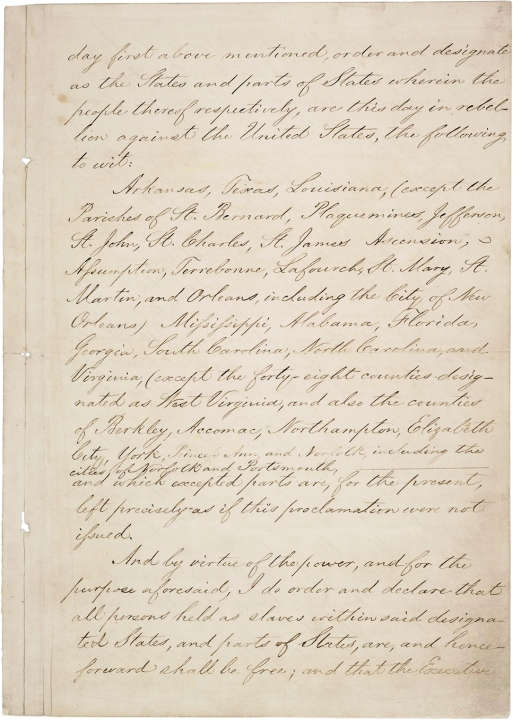 day first above mentioned, order and designate
as the States and parts of States wherein the
people thereof respectively, are this day in rebel-
lion against the United States, the following,
to wit:
Arkansas, Texas, Louisiana, (except the
Parishes of St. Bernard, Plaquemines, Jefferson,
St. John, St. Charles, St. James Ascension,
Assumption, Terrebonne, Lafourche, St. Mary, St.
Martin, and Orleans, including the City of New
Orleans) Mississippi, Alabama, Florida,
Georgia, South Carolina, North Carolina, and
Virginia, (except the forty-eight counties desig-
nated as West Virginia, and also the counties
of Berkley, Accomac, Northampton, Elizabeth
City, York, Princess Ann, and Norfolk, including the
cities of Norfolk and Portsmouth,
and which excepted parts are, for the present,
left precisely as if this proclamation were not
issued.
And by virtue of the power, and for the
purpose aforesaid, I do order and declare that
all persons held as slaves within said designa-
ted States, and parts of States, are, and hence-
forward shall be free; and that the Executive